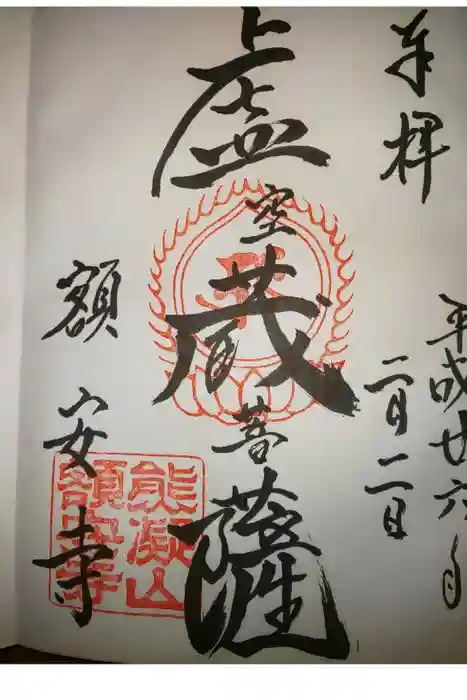 奉拝
平成廿六年
二月二日
虚空蔵菩薩
額安寺
熊凝山
額安寺